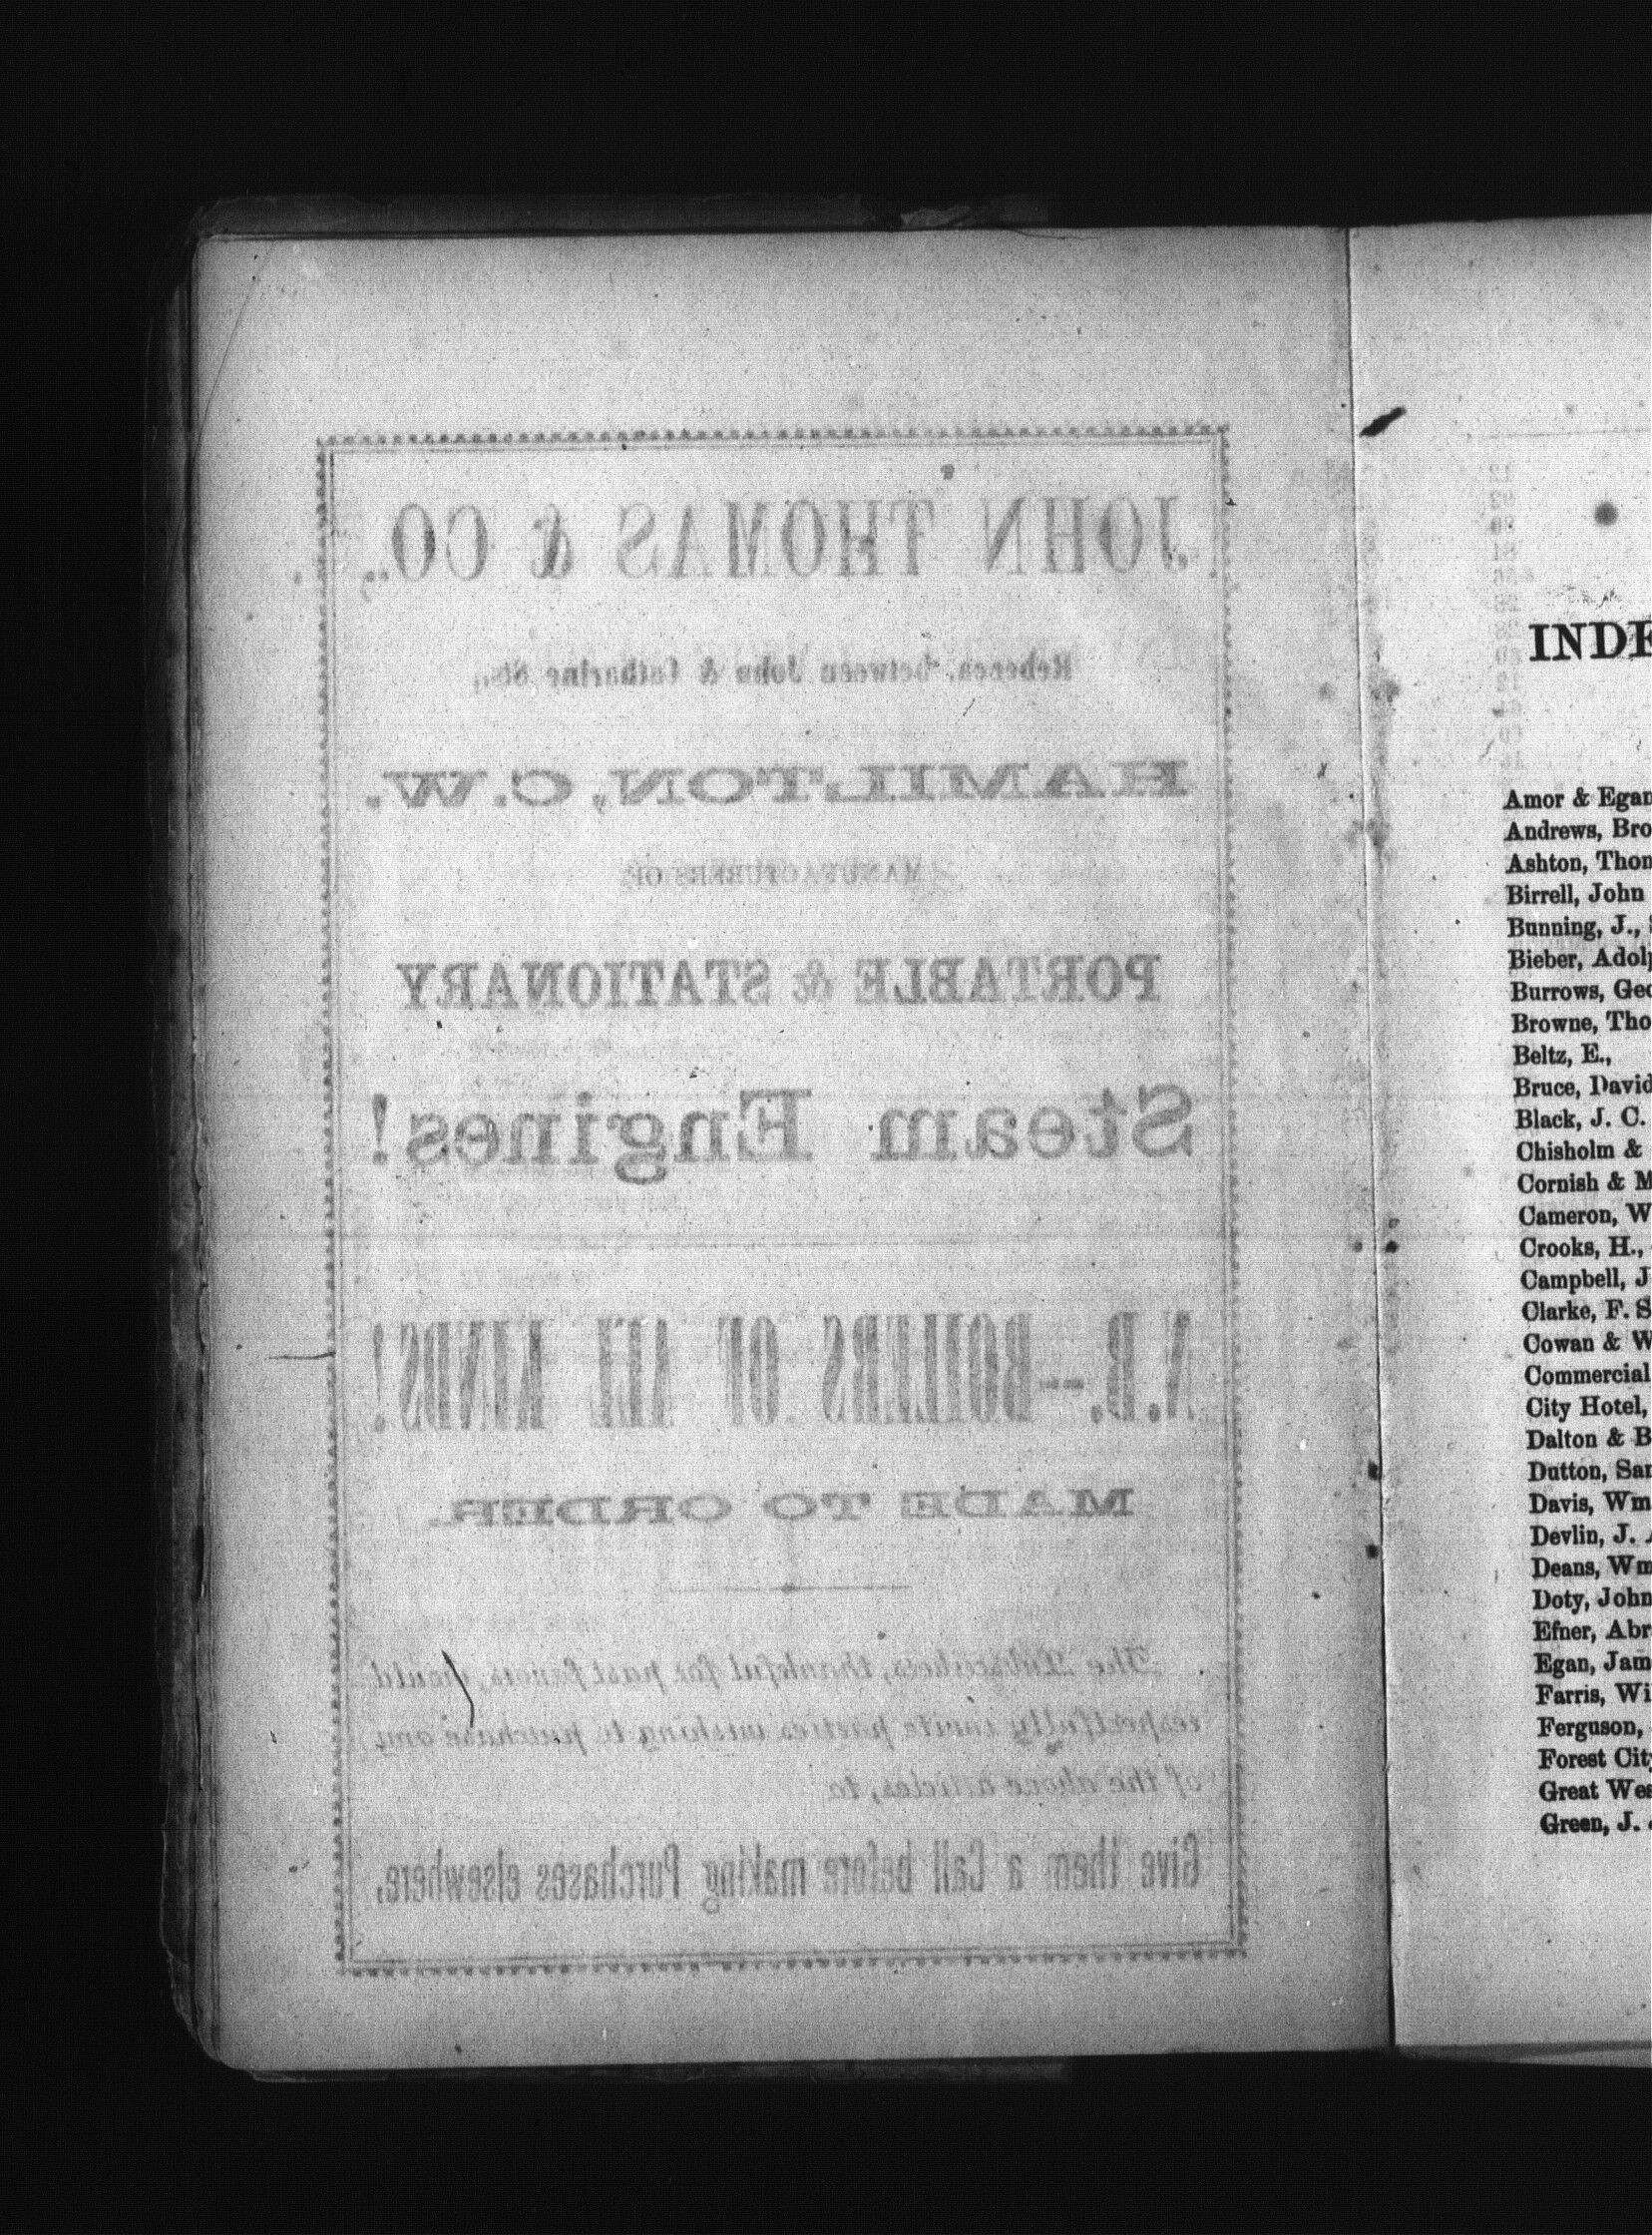 JOHN THOMAS & CO.,
Rebecca, between John & Catharine Sts.,
HAMILTON, C.W.
MANUFACTURERS OF
PORTABLE & STATIONARY
Steam Engines!
N.B.--BOILERS OF ALL KINDS!
MADE TO ORDER.
The Subscribers, thankful for past favors, would
respectfully invite parties wishing to purchase any
of the above articles, to
Give them a Call before making Purchases elsewhere.
INDE
Amor & Egan
Andrews, Bro
Ashton, Thom
Birrell, John
Bunning, J.,
Bieber, Adolp
Burrows, Geo
Browne, Tho
Beltz, E.,
Bruce, David
Black, J. C.
Chisholm &
Cornish & M
Cameron, W
Crooks, H.,
Campbell, J
Clarke, F. S
Cowan & W
Commercial
City Hotel,
Dalton & B
Dutton, Sam
Davis, Wm
Devlin, J. A
Deans, Wm
Doty, John
Efner, Abr
Egan, Jam
Farris, Wi
Ferguson,
Forest City
Great Wes
Green, J.